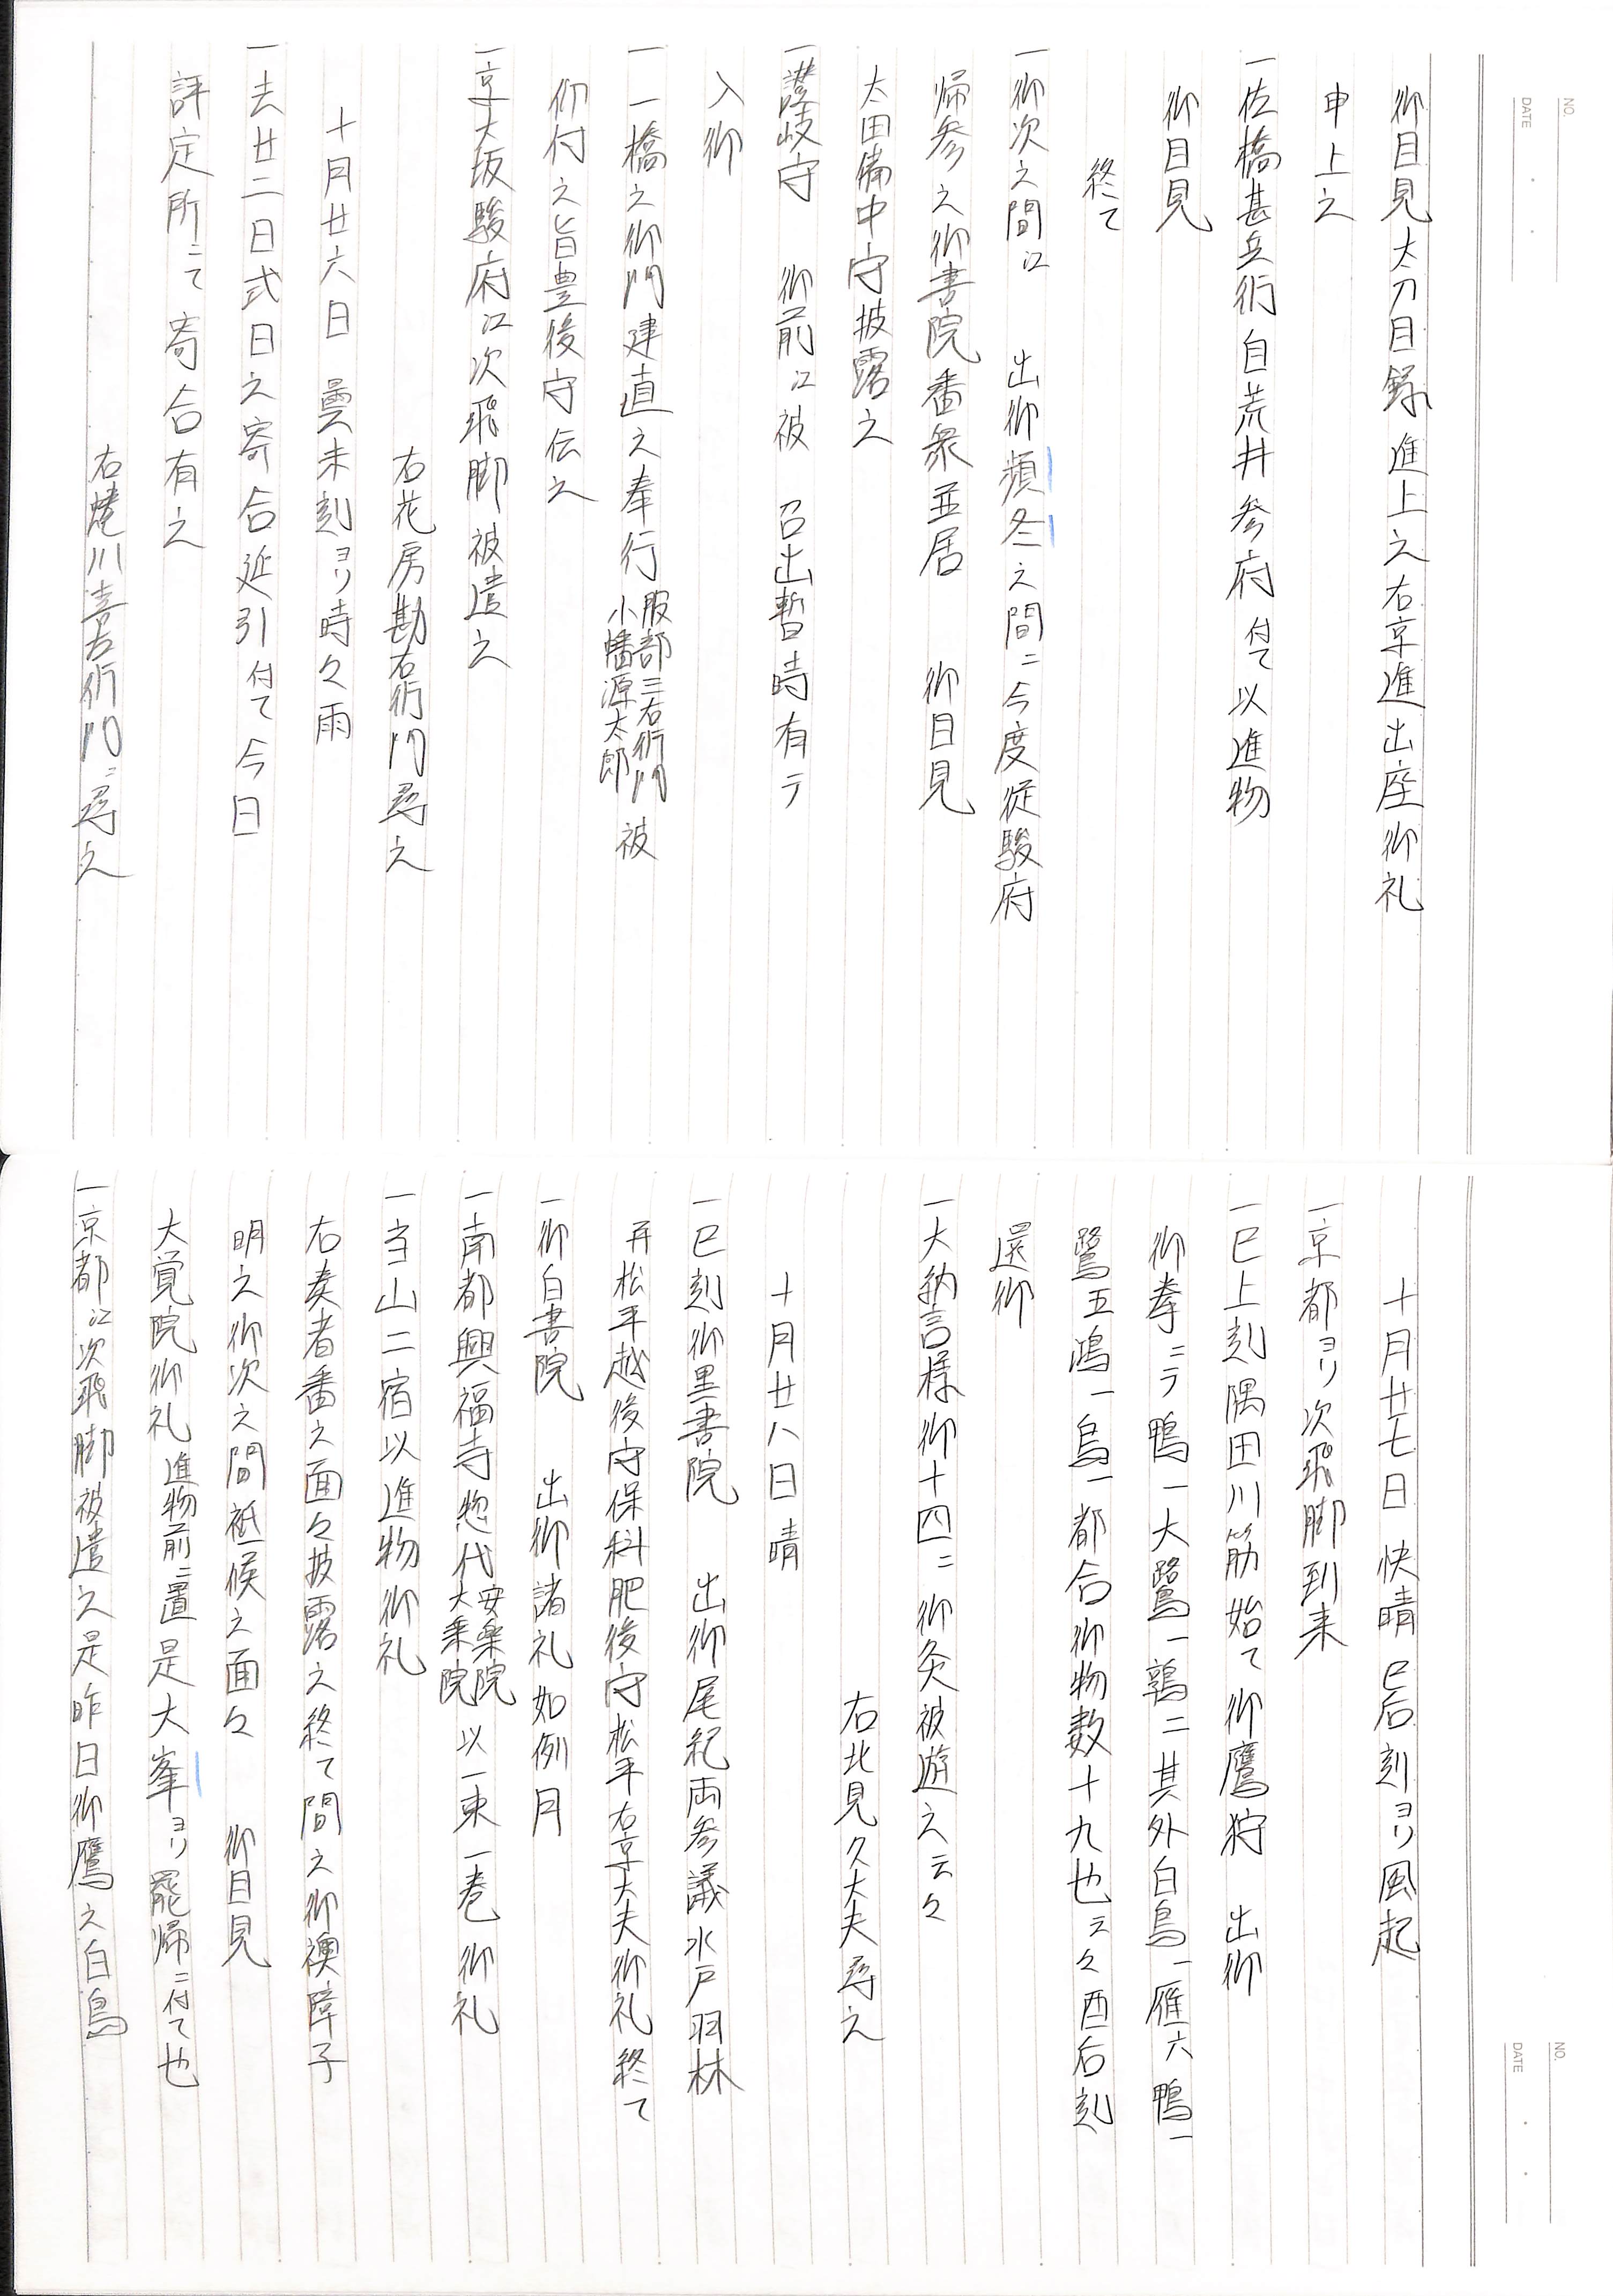 NO.
DATE
御目見太刀目録進上之右京進出座御礼
申上之
一佐橋甚兵衛自荒井参府付て以進物
御目見
終て
一御次之間江 出御頻冬之間ニ今度従駿府
帰参之御書院番衆並居 御目見
太田備中守披露之
一讃岐守 御前江被 召出暫時有テ
入御
一一橋之御門建直之奉行服部三右衛門小幡源太郎被
仰付之旨豊後守伝之
一京大坂駿府江次飛脚被遣之
右花房勘右衛門尋之
十月廿六日 曇未刻ヨリ時々雨
一去廿二日式日之寄合延引付て今日
評定所ニて寄合有之
右蜷川喜右衛門ニ尋之
NO.
DATE
十月廿七日 快晴巳后刻ヨリ風起
一京都ヨリ次飛脚到来
一巳上刻隅田川筋始て御鷹狩 出御
御拳ニテ鴨一大鷺一鶉二其外白鳥一雁六鴨一
鷺五鴻一烏一都合御物数十九也云々酉后刻
還御
一大納言様御十四ニ御灸被遊之云々
右北見久大夫尋之
十月廿八日晴
一巳刻御黒書院 出御尾紀両参議水戸羽林
再松平越後守保科肥後守松平右京大夫御礼終て
一御白書院 出御諸礼如例月
一南都興福寺惣代安楽院大乗院以一束一巻御礼
一当山二宿以進物御礼
右奏者番之面々披露之終て間之御襖障子
明之御次之間祗候之面々 御目見
大覚院御礼進物前ニ置是大峯ヨリ罷帰ニ付て也
一京都江次飛脚被遣之是昨日御鷹之白鳥